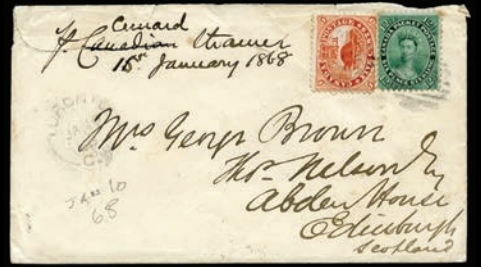 Cunard
p. Canadian Steamer
15th January 1868
CANADA PACKET POSTAGE
TORONTO
JAN
C.
JAN 10
68
Mrs George Brown
Thos Nelson Esq
Abden House
Edinburgh
Scotland